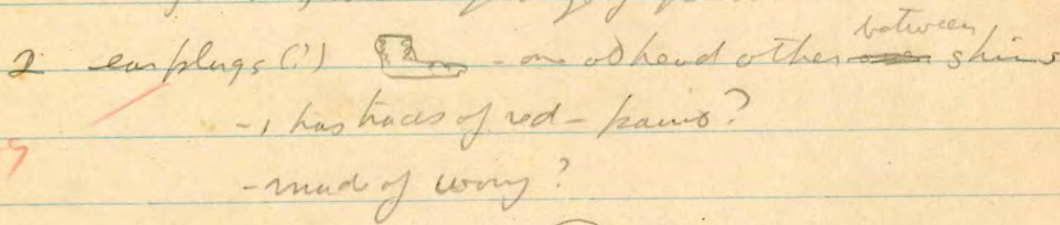 2 earplugs (?) - one at head other between shins
- 1 has traces of red - paint?
- made of ivory?